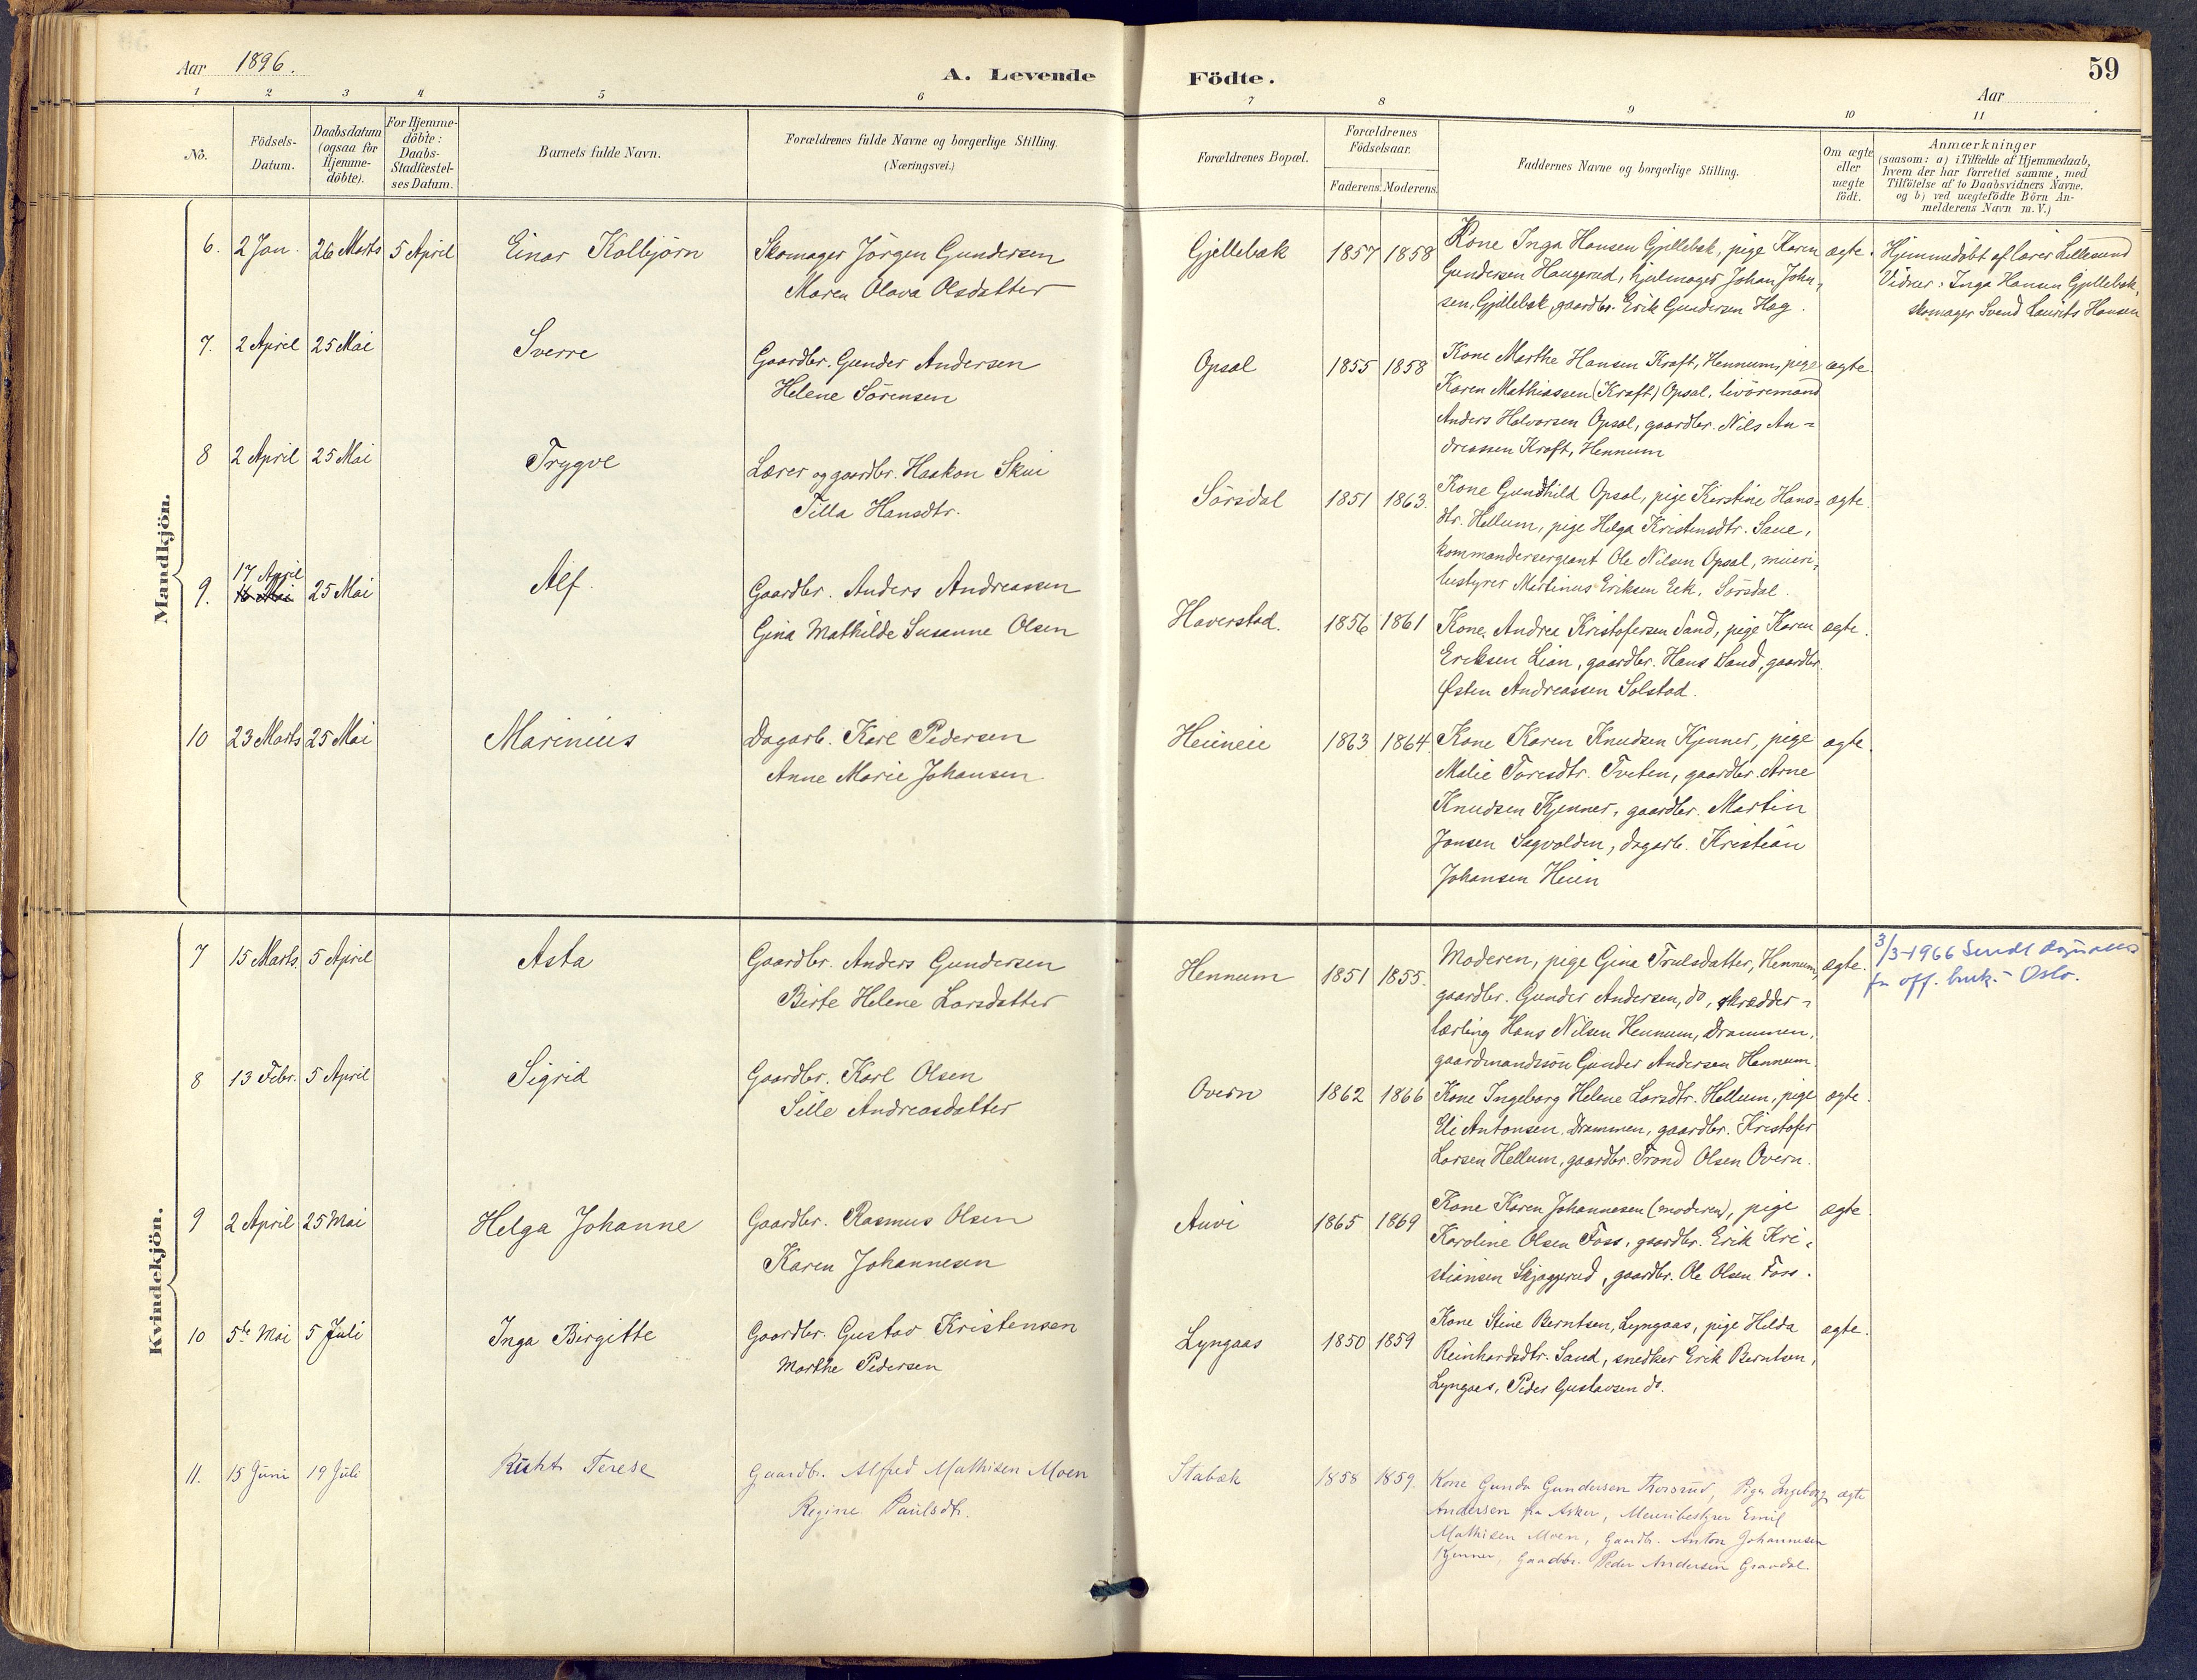 Aar 1896.
A. Levende Födte.
59
Aar
1 2 3 4 5 6 7 8 9 10 11
No.
Födsels-
Datum.
Daabsdatum
(ogsaa for
Hjemme-
döbte).
For Hjemme-
döbte:
Daabs-
Stadfæstel-
ses Datum.
Barnets fulde Navn.
Forældrenes fulde Navne og borgerlige Stilling.
(Næringsvei.)
Forældrenes Bopæl.
Forældrenes
Födselsaar.
Faderens. Moderens.
Faddernes Navne og borgerlige Stilling.
Om ægte
eller
uægte
födt.
Anmærkninger
(saasom: a) i Tilfælde af Hjemmedaab,
hvem der har forrettet samme, med
Tilföielse af to Daabsvidners Navne,
og b) ved uægtefödte Börn An-
melderens Navn m. V.)
Mandkjön.
6. 2 Jan. 26 Marts 5 April Einar Kolbjörn
Skomager Jörgen Gundersen
Maren Olava Olsdatter
Gjellebæk 1857 1858
Kone Inga Hansen Gjellebæk, pige Karen
Gundersen Haugerud, hjulmager Johan John-
sen, Gjellebæk, gaardbr. Erik Gundersen Hæg.
ægte.
Hjemmedöbt af lærer Lillesund
Vidner: Inga Hansen Gjellebæk,
skomager Svend Laurits Hansen
7. 2 April 25 Mai Sverre
Gaardbr. Gunder Andersen
Helene Sörensen
Opsal 1855 1858
Kone Marthe Hansen Kraft, Hennum, pige
Karen Mathiassen (Kraft) Opsal, livöremand
Anders Halvorsen Opsal, gaardbr. Nils An-
dreassen Kraft, Hennum
ægte
8 2 April 25 Mai Trygve
Lærer og gaardbr. Haakon Skui
Tilla Hansdtr.
Sörsdal 1851 1863.
Kone Gundhild Opsal, pige Kirstine Hans-
dtr. Hellum, pige Helga Kristensdtr. Saue,
kommandersergeant Ole Nilsen Opsal, meieri-
bestyrer Martinus Eriksen Eek, Sörsdal.
ægte.
9. 17 April
16 Mai 25 Mai Alf.
Gaardbr. Anders Andreassen
Gina Mathilde Susanne Olsen
Haverstad. 1856 1861
Kone Andrea Kristofersen Sand, pige Karen
Eriksen Lian, gaardbr. Hans Sand, gaardbr.
Østen Andreassen Solstad.
ægte.
10 23 Marts 25 Mai Marinius
Dagarb. Karl Pedersen
Anne Marie Johansen
Heieneie 1863 1864
Kone Karen Knudsen Kjenner, pige
Malie Toresdtr. Tveten, gaardbr. Arne
Knudsen Kjenner, gaardbr. Martin
Jansen Sagvolden, dagarb. Kristian
Johansen Heien
ægte.
Kvindekjön.
7 15 Marts 5 April Asta
Gaardbr. Anders Gundersen
Birte Helene Larsdatter
Hennum 1851 1855.
Moderen, pige Gina Trulsdatter, Hennum,
gaardbr. Gunder Andersen, do, skrædder-
lærling Hans Nilsen Hennum, Drammen,
gaardmandssön Gunder Andersen Hennum.
ægte.
3/3-1966 Sendt
for off. bruk. - Oslo.
8 13 Febr. 5 April Sigrid
Gaardbr. Karl Olsen
Sille Andreasdatter
Overn 1862 1866
Kone Ingeborg Helene Larsdtr. Hellum, pige
Eli Antonsen, Drammen, gaardbr. Kristofer
Larsen Hellum, gaardbr. Trond Olsen Overn.
ægte.
9 2 April 25 Mai Helga Johanne
Gaardbr. Rasmus Olsen
Karen Johannesen
Auvi 1865 1869
Kone Karen Johannesen (moderen), pige
Karoline Olsen Foss, gaardbr. Erik Kri-
stiansen Skjaggerud, gaardbr. Ole Olsen Foss.
ægte
10 5te Mai 5 Juli Inga Birgitte
Gaardbr. Gustav Kristensen
Marthe Pedersen
Lyngaas 1850 1859
Kone Stine Berntsen, Lyngaas, pige Hilda
Reinhardsdtr. Sand, snedker Erik Berntsen,
Lyngaas, Peder Gustavsen do.
ægte.
11. 15 Juni 19 Juli Ruht Terese
Gaardbr. Alfred Mathisen Moen
Regine Paulsdtr.
Stabæk 1858 1859.
Kone Gunda Gundersen Rorsrud, Pige Ingeborg
Andersen fra Asker, Meieribestyrer Emil
Mathisen Moen, Gaardbr. Anton Johannesen
Kjenner, Gaardbr. Peder Andersen Gravdal.
ægte